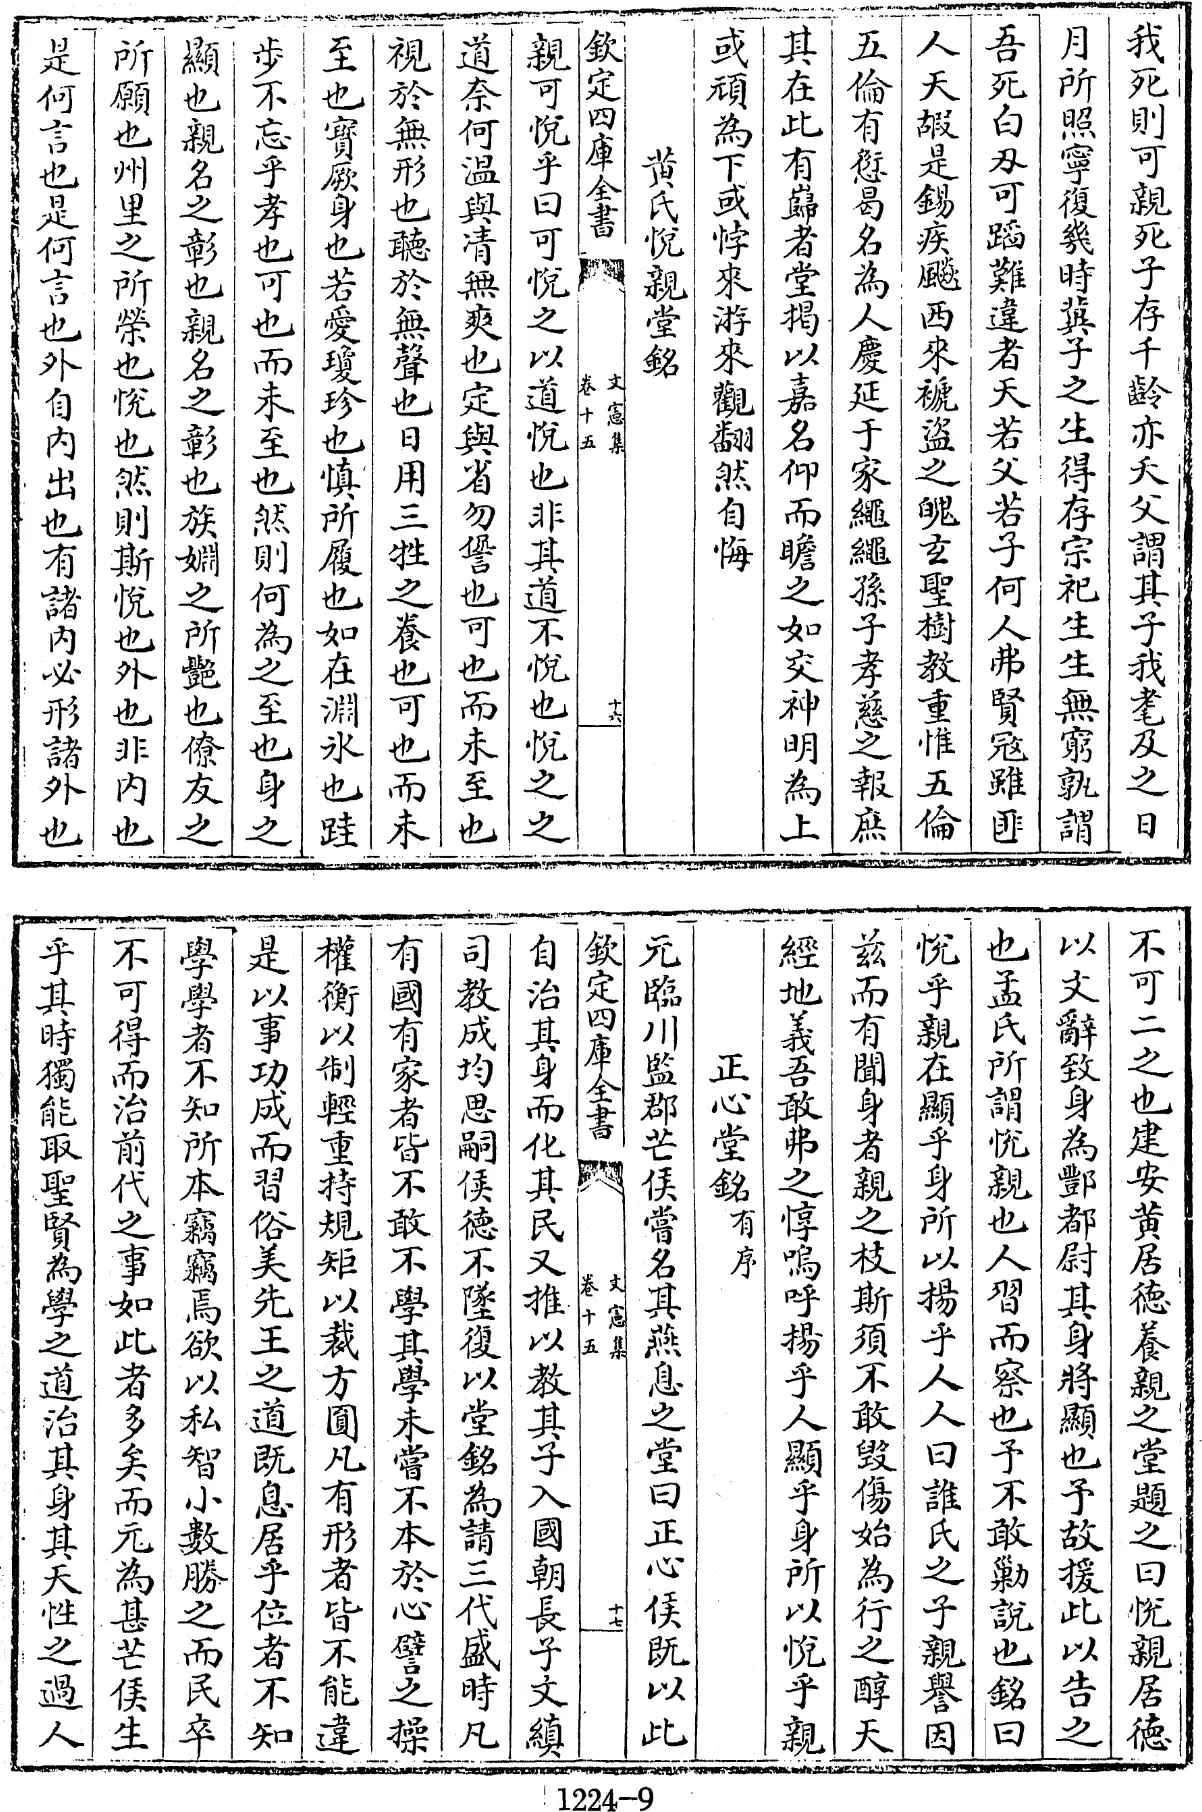 我死則可親死子存千齡亦夭父謂其子我耄及之日
月所照寧復幾時冀子之生得存宗祀生生無窮孰謂
吾死白刃可蹈難違者天若父若子何人弗賢冦雖匪
人天嘏是錫疾飈西來褫盜之魄玄聖樹教重惟五倫
五倫有愆曷名為人慶延于家繩繩孫子孝慈之報庶
其在此有巋者堂揭以嘉名仰而瞻之如交神明為上
或頑為下或悖來游來觀翻然自悔
黄氏悅親堂銘
欽定四庫全書
文憲集
卷十五
十六
親可悅乎曰可悅之以道悅也非其道不悅也悅之之
道奈何温與凊無爽也定與省勿諐也可也而未至也
視於無形也聽於無聲也日用三牲之養也可也而未
至也寳厥身也若愛瓊珍也慎所履也如在淵氷也跬
歩不忘乎孝也可也而未至也然則何為之至也身之
顯也親名之彰也親名之彰也族婣之所艷也僚友之
所願也州里之所榮也悅也然則斯悅也外也非内也
是何言也是何言也外自内出也有諸内必形諸外也
不可二之也建安黄居徳養親之堂題之曰悅親居徳
以文辭致身為酆都尉其身將顯也予故援此以告之
也孟氏所謂悅親也人習而察也予不敢勦說也銘曰
悅乎親在顯乎身所以揚乎人人曰誰氏之子親譽因
兹而有聞身者親之枝斯須不敢毁傷始為行之醇天
經地義吾敢弗之惇嗚呼揚乎人顯乎身所以悅乎親
正心堂銘有序
元臨川監郡芒侯嘗名其燕息之堂曰正心侯既以此
欽定四庫全書
文憲集
卷十五
十七
自治其身而化其民又推以教其子入國朝長子文縝
司教成均思嗣侯徳不墜復以堂銘為請三代盛時凡
有國有家者皆不敢不學其學未嘗不本於心譬之操
權衡以制輕重持規矩以裁方圓凡有形者皆不能違
是以事功成而習俗美先王之道既息居乎位者不知
學學者不知所本竊竊焉欲以私智小數勝之而民卒
不可得而治前代之事如此者多矣而元為甚芒侯生
乎其時獨能取聖賢為學之道治其身其天性之過人
1224-9